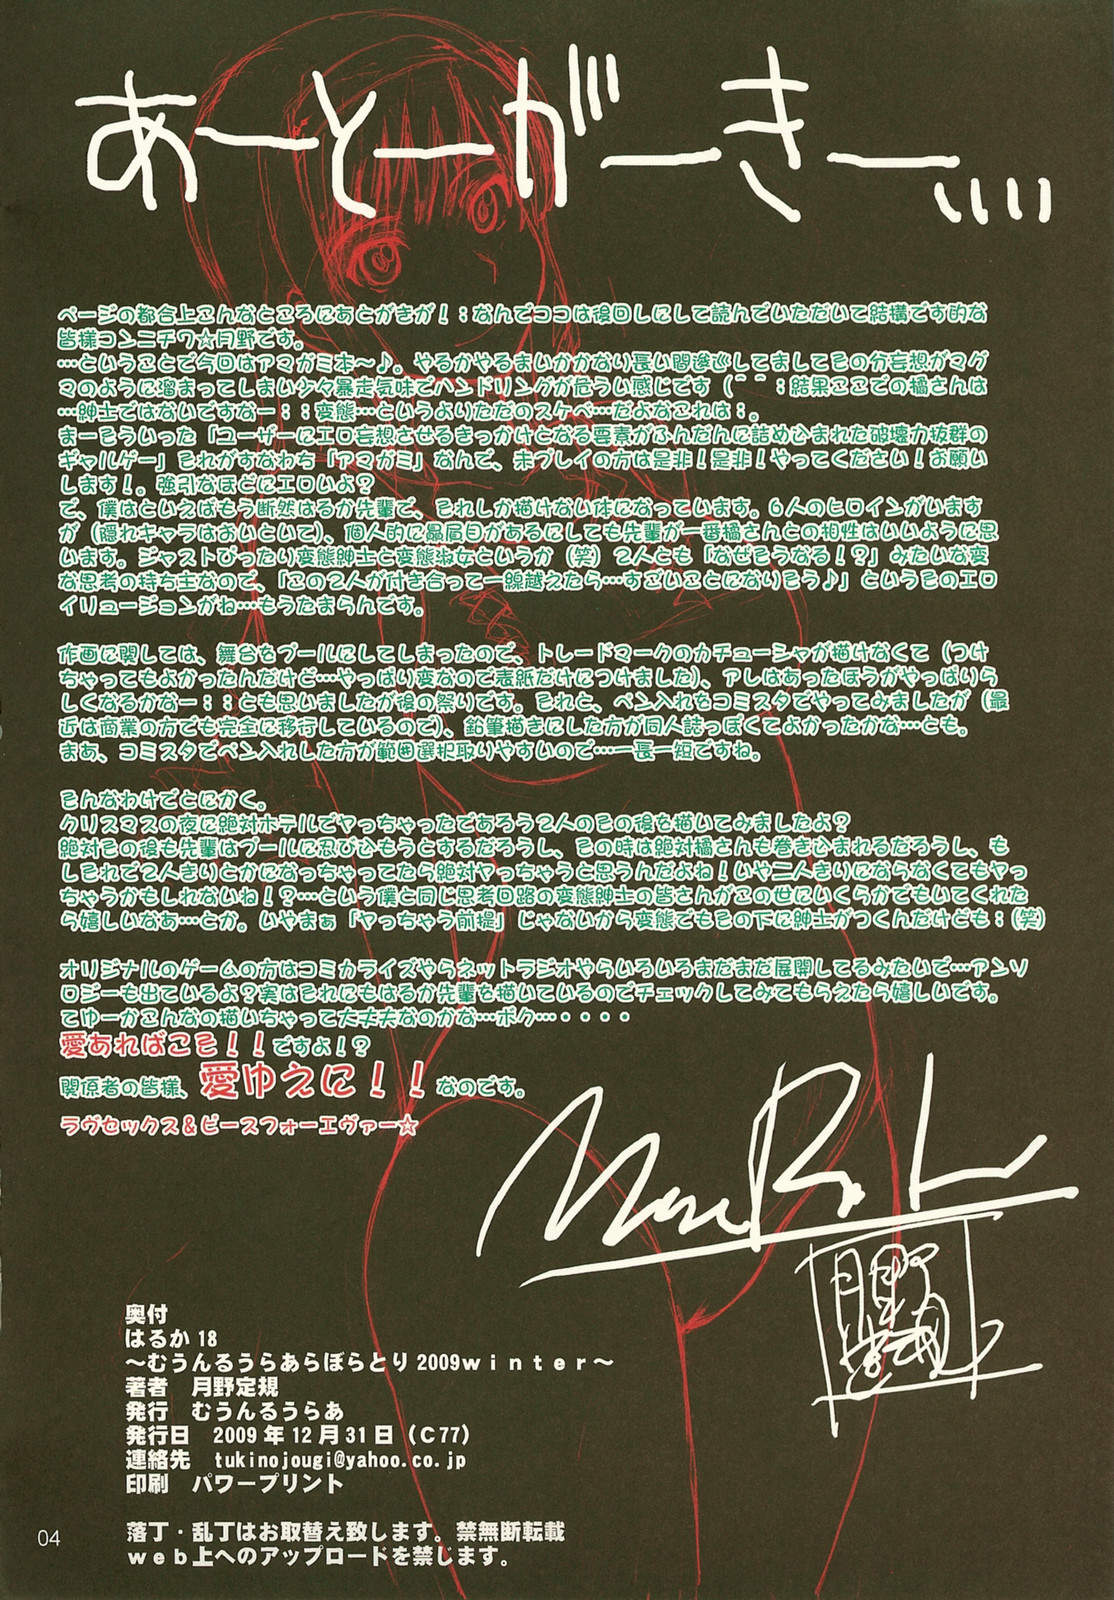 あーとーがーきー、、、、
ページの都合上こんなところにあとがきが！；なんでココは後回しにして読んでいただいて結構です的な
皆様コンニチワ☆月野です。
…ということで今回はアマガミ本～♪。やるかやるまいかかなり長い間逡巡してましてその分妄想がマグ
マのように溜まってしまい少々暴走気味でハンドリングが危うい感じです（＾＾；結果ここでの橘さんは
…紳士ではないですなー；；変態…というよりただのスケベ…だよなこれは；。
まーそういった「ユーザーにエロ妄想させるきっかけとなる要素がふんだんに詰め込まれた破壊力抜群の
ギャルゲー」それがすなわち「アマガミ」なんで、未プレイの方は是非！是非！やってください！お願い
します！。強引なほどにエロいよ？
で、僕はといえばもう断然はるか先輩で、それしか描けない体になっています。６人のヒロインがいます
が（隠れキャラはおいといて）、個人的に贔屓目があるにしても先輩が一番橘さんとの相性はいいように思
います。ジャストぴったり変態紳士と変態淑女というか（笑）２人とも「なぜそうなる！？」みたいな変
な思考の持ち主なので、「この２人が付き合って一線越えたら…すごいことになりそう♪」というそのエロ
イリュージョンがね…もうたまらんです。
作画に関しては、舞台をプールにしてしまったので、トレードマークのカチューシャが描けなくて（つけ
ちゃってもよかったんだけど…やっぱり変なので表紙だけにつけました）、アレはあったほうがやっぱりら
しくなるかなー；；とも思いましたが後の祭りです。それと、ペン入れをコミスタでやってみましたが（最
近は商業の方でも完全に移行しているので）、鉛筆描きにした方が同人誌っぽくてよかったかな…とも。
まあ、コミスタでペン入れした方が範囲選択取りやすいので…一長一短ですね。
そんなわけでとにかく。
クリスマスの夜に絶対ホテルでヤっちゃったであろう２人のその後を描いてみましたよ？
絶対その後も先輩はプールに忍び込もうとするだろうし、その時は絶対橘さんも巻き込まれるだろうし、も
しそれで２人きりとかになっちゃってたら絶対ヤっちゃうと思うんだよね！いや二人きりにならなくてもヤっ
ちゃうかもしれないね！？…という僕と同じ思考回路の変態紳士の皆さんがこの世にいくらかでもいてくれた
ら嬉しいなあ…とか。いやまぁ「ヤっちゃう前提」じゃないから変態でもその下に紳士がつくんだけども；（笑）
オリジナルのゲームの方はコミカライズやらネットラジオやらいろいろまだまだ展開してるみたいで…アンソ
ロジーも出ているよ？実はそれにもはるか先輩を描いているのでチェックしてみてもらえたら嬉しいです。
てゆーかこんなの描いちゃって大丈夫なのかな…ボク…・・・・
愛あればこそ！！ですよ！？
関係者の皆様、愛ゆえに！！なのです。
ラヴセックス＆ピースフォーエヴァー☆
奥付
はるか18
～むうんるうらあらぼらとり2009winter～
著者　月野定規
発行　むうんるうらあ
発行日　2009年12月31日（C77）
連絡先　tukinojougi@yahoo.co.jp
印刷　パワープリント
落丁・乱丁はお取替え致します。禁無断転載
web上へのアップロードを禁じます。
04